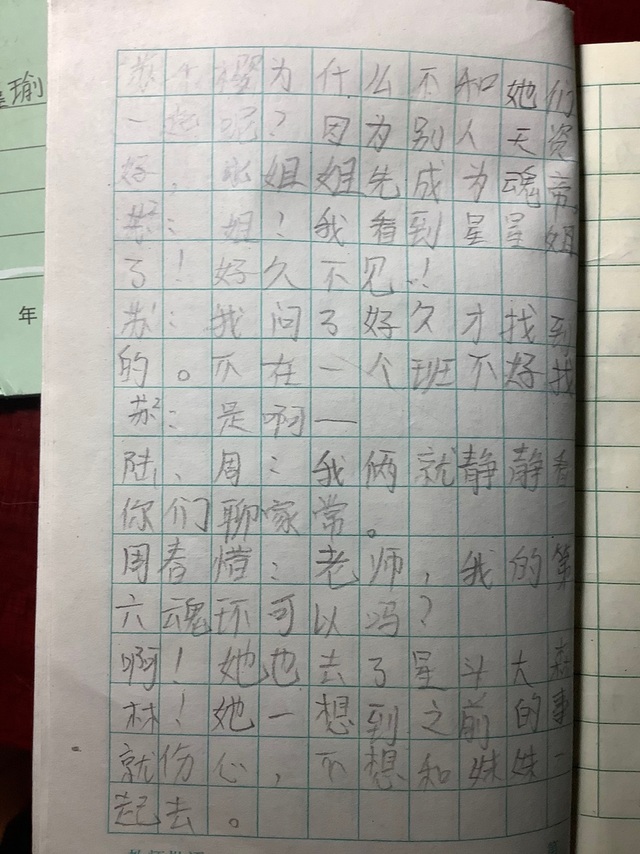 瑜
年
苏小樱为什么不和她们
一起呢？因为别人天资
好，张姐姐先成为魂帝
苏²：姐！我看到星星姐
了！好久不见！
苏¹：我问了好久才找到
的。不在一个班不好找
苏²：是啊——
陆、周：我俩就静静看
你们聊家常。
周春愷：老师，我的第
六魂环可以吗？
啊！她也去了星斗大森
林！她一想到之前的事
就伤心，不想和妹妹一
起去。